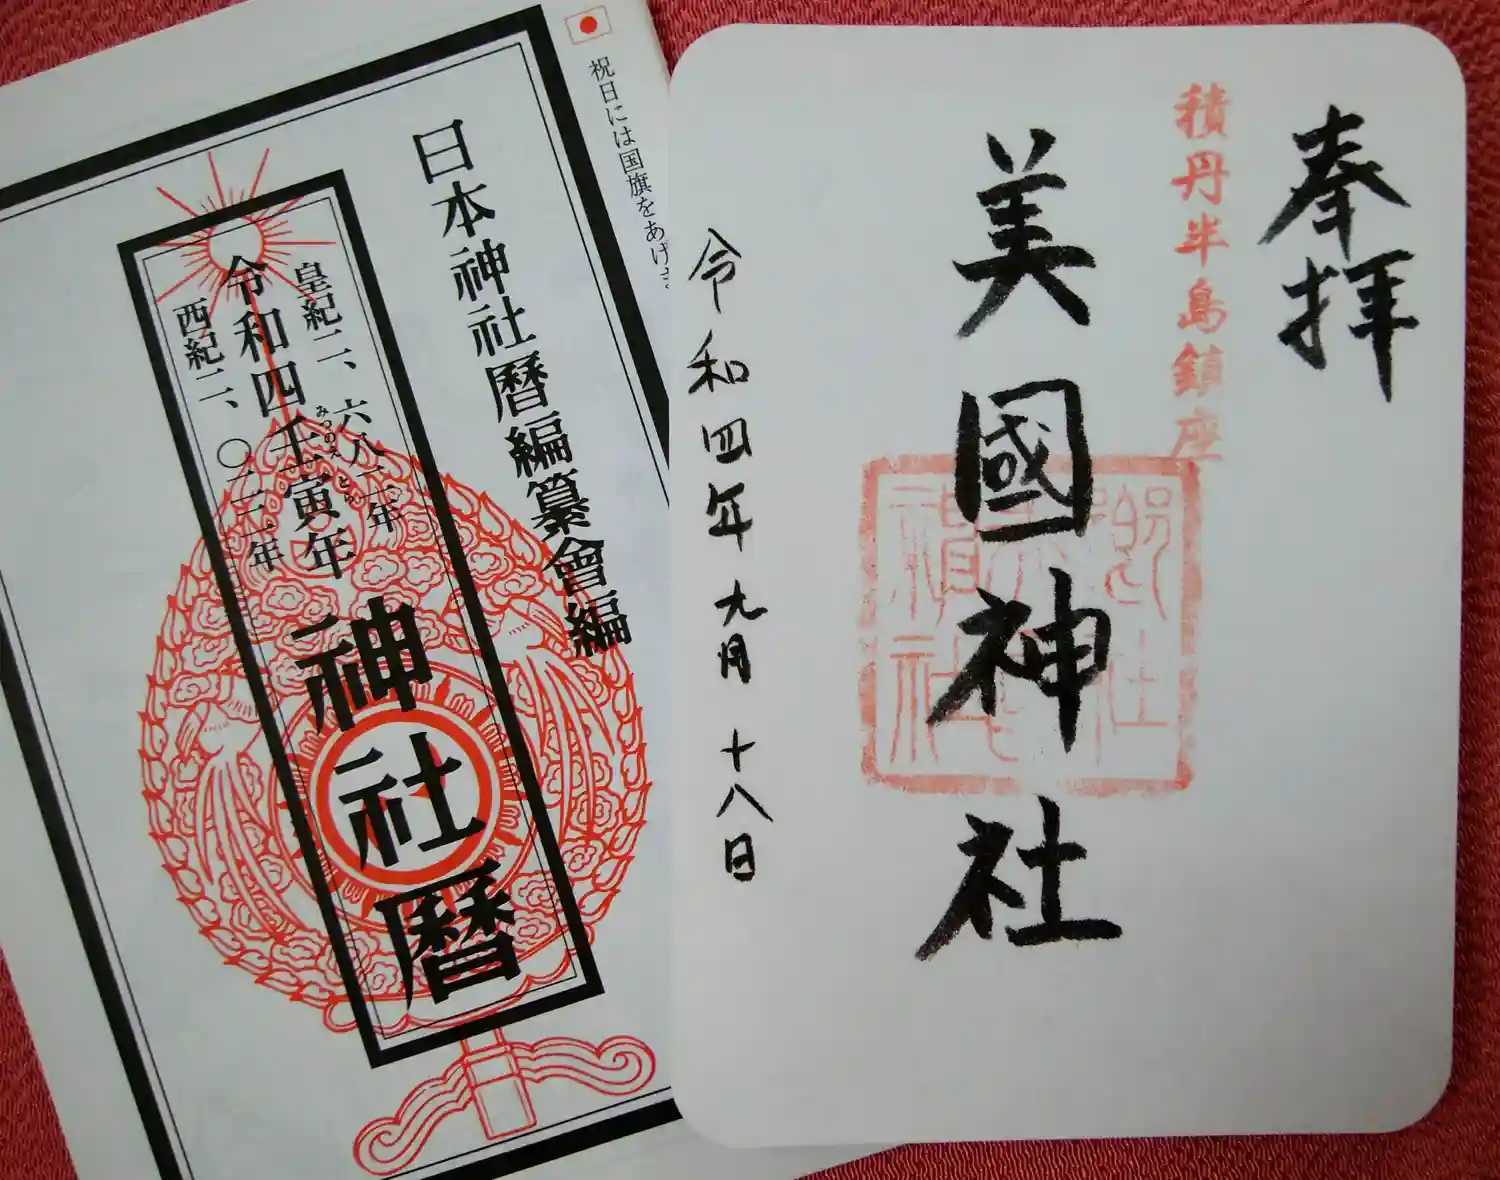 奉拝
積丹半島鎮座
美國神社
令和四年九月十八日
祝日には国旗をあげま
日本神社暦編纂會編
皇紀二、六八二年
令和四壬寅年
みづのえとら
西紀二、〇二二年
神社暦